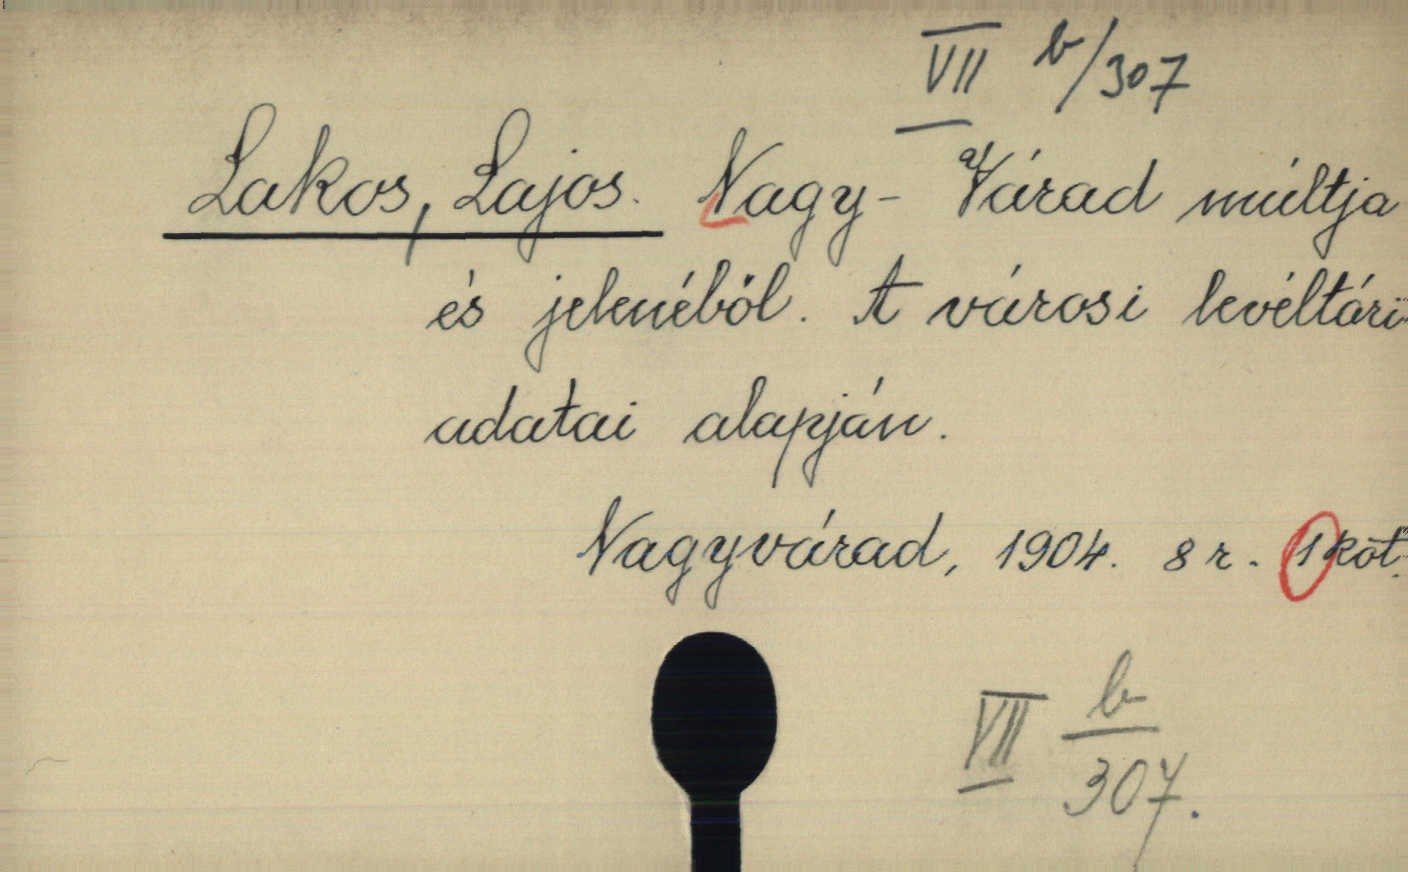 VII b/307
Lakos, Lajos. Nagy-Várad múltja
és jelenéből. A városi levéltári
adatai alapján.
Nagyvárad, 1904. 8 r. 1 köt.
VII b
307.